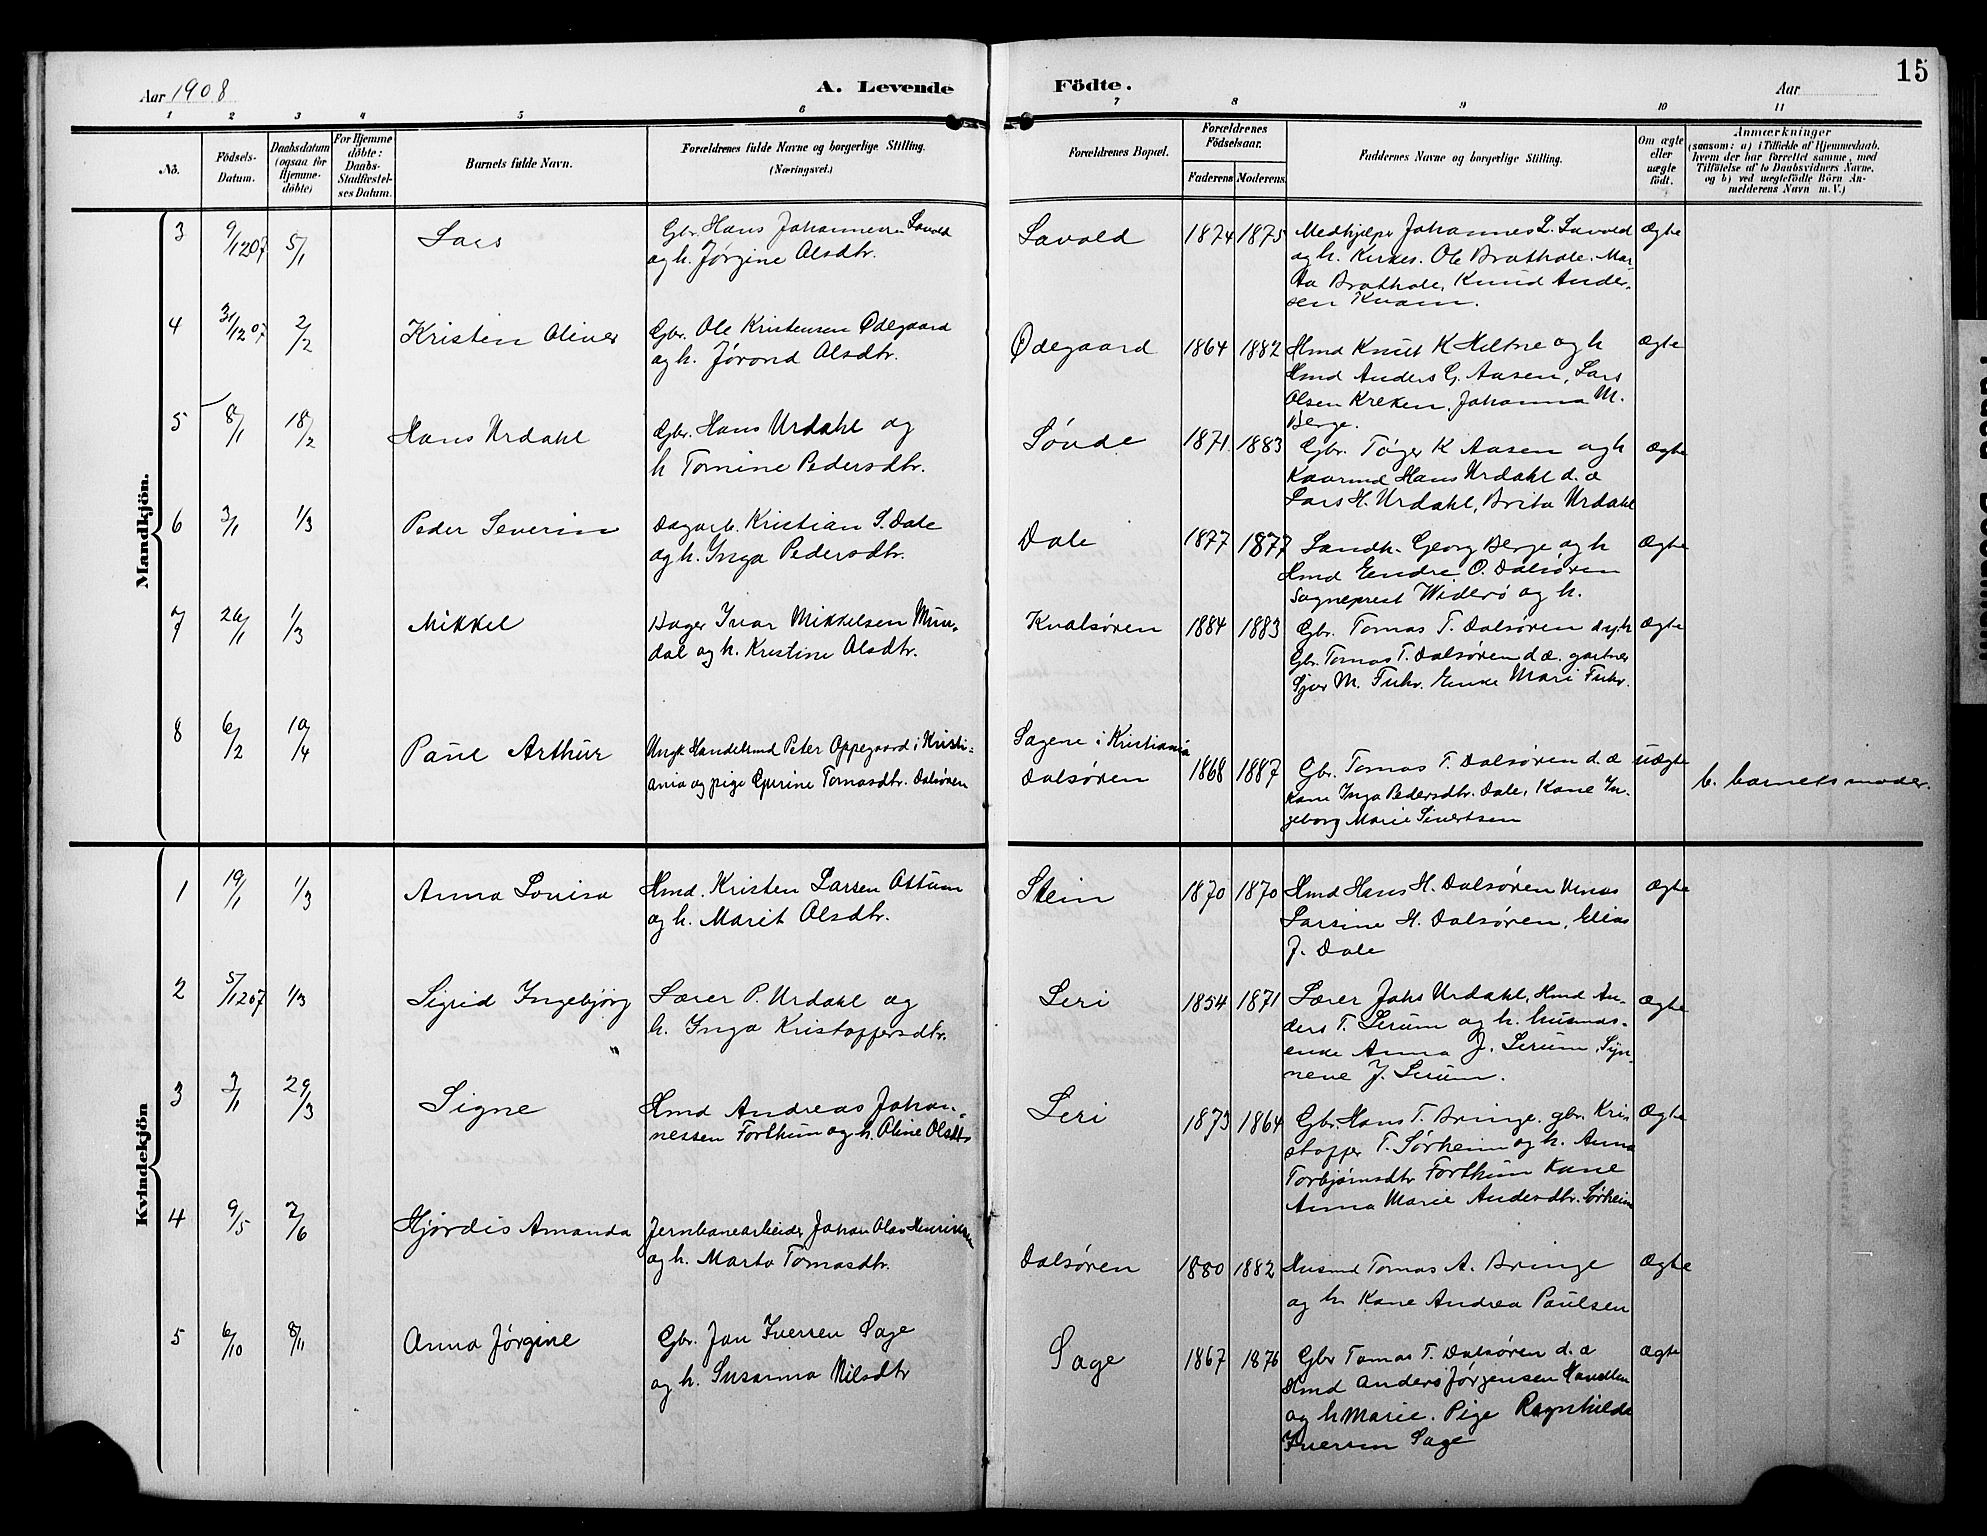 Aar 1908
A. Levende
Födte.
Aar
15
1 2 3 4 5 6 7 8 9 10 11
No.
Födsels-
Datum.
Daabsdatum
(ogsaa for
Hjemme-
döbte)
For Hjemme
döbte:
Daabs-
Stadfæstel-
ses Datum.
Barnets fulde Navn.
Forældrenes fulde Navne og borgerlige Stilling.
(Næringsvei.)
Forældrenes Bopæl.
Forældrenes
Födselsaar.
Faderens Moderens
Faddernes Navne og borgerlige Stilling.
Om ægte
eller
uægte
födt.
Anmærkninger
(saasom: a) i Tilfælde af Hjemmedaab,
hvem der har forrettet samme, med
Tilföielse af to Daabsvidners Navne,
og b) ved uægtefödte Börn An-
melderens Navn m. V.)
Mandkjön.
3 9/12 07 5/1 Lars
Gbr. Hans Johannesen Lavold
og h. Jørgine Olsdtr.
Lavold 1874 1875
Medhjælper Johannes L. Lavold
og h. Kirkes. Ole Brathole. Mar-
ta Brathole, Knud Ander-
sen Kvam.
Ægte
4 31/12 07 2/2 Kristen Oliver
Gbr. Ole Kristensen Ødegaard
og h. Jørond Olsdtr.
Ødegaard 1864 1882
Hmd Knut K Heltne og h
Hmd Anders G. Aasen, Lars
Olsen Kreken, Johanna M.
Berge.
Ægte
5 8/1 18/2 Hans Urdahl
Gbr. Hans Urdahl og
h Tomine Pedersdtr.
Sónde 1871 1883
Gbr. Tøger K Aasen og h
Kaarmd Hans Urdahl d. æ
Lars H. Urdahl, Brita Urdahl
Ægte
6 3/1 1/3 Peder Severin
Dagarb. Kristian S. Dale
og h. Inga Pedersdtr.
Dale 1877 1877
Landh. Georg Berge og h
Hmd Endre O. Dalsøren
Sogneprest Widerø og h.
Ægte
7 26/1 1/3 Mikkel
Bager Ivar Mikkelsen Mun-
dal og h. Kristine Olsdtr.
Kvalsøren 1884 1883
Gbr. Tomas T. Dalsøren d.y. h
Gbr. Tomas T. Dalsøren d. æ. gartner
Sjur M. Fuhr. Enke Mari Fuhr.
Ægte
8 6/2 10/4 Paul Arthur
Ungk Handelsmd Peter Oppegaard i Kristi-
ania og pige Gurine Tomasdtr. Dalsøren
Sagene i Kristiania
Dalsøren 1868 1887
Gbr. Tomas T. Dalsøren d. æ
Kone Inga Pedersdtr. Dale, Kone In-
geborg Marie Sivertsen
uægte
b. barnets moder.
Kvindekjön
1 19/1 1/3 Anna Lovisa
Hmd. Kristen Larsen Ottum
og h. Marit Olsdtr.
Stein 1870 1870
Hmd Hans H. Dalsøren
Larsine H. Dalsøren, Elias
J. Dale
Ægte
2 5/12 07 1/3 Sigrid Ingebjørg
Lærer P. Urdahl og
h. Inga Kristoffersdtr.
Leri 1854 1871
Lærer Johs Urdahl, Hmd An-
ders T. Lerum og h. husmds-
enke Anna J. Lerum, Syn-
neve J. Lerum.
Ægte
3 3/1 29/3 Signe
Hmd Andreas Johan-
nessen Forthun og h. Oline Olsdtr
Leri 1873 1864
Gbr. Hans T. Bringe, gbr. Kris
stoffer T. Sørheim og h. Anna
Torbjørnsdtr Forthun Kone
Anna Marie Andersdtr. Sørheim
Ægte
4 9/5 7/6 Hjørdis Amanda
Jernbanearbeider Johan Olav Henriksen
og h. Marta Tomasdtr.
Dalsøren 1880 1882
Husmd Tomas A. Bringe
og h Kone Andrea Paulsen
Ægte
5 6/10 8/11 Anna Jørgine
Gbr. Jan Iversen Sage
og h. Susanna Nilsdtr
Sage 1867 1876
Gbr Tomas T. Dalsøren d. æ
Hmd Anders Jørgensen
og h Marie. Pige Ragnhilda
Iversen Sage
Ægte